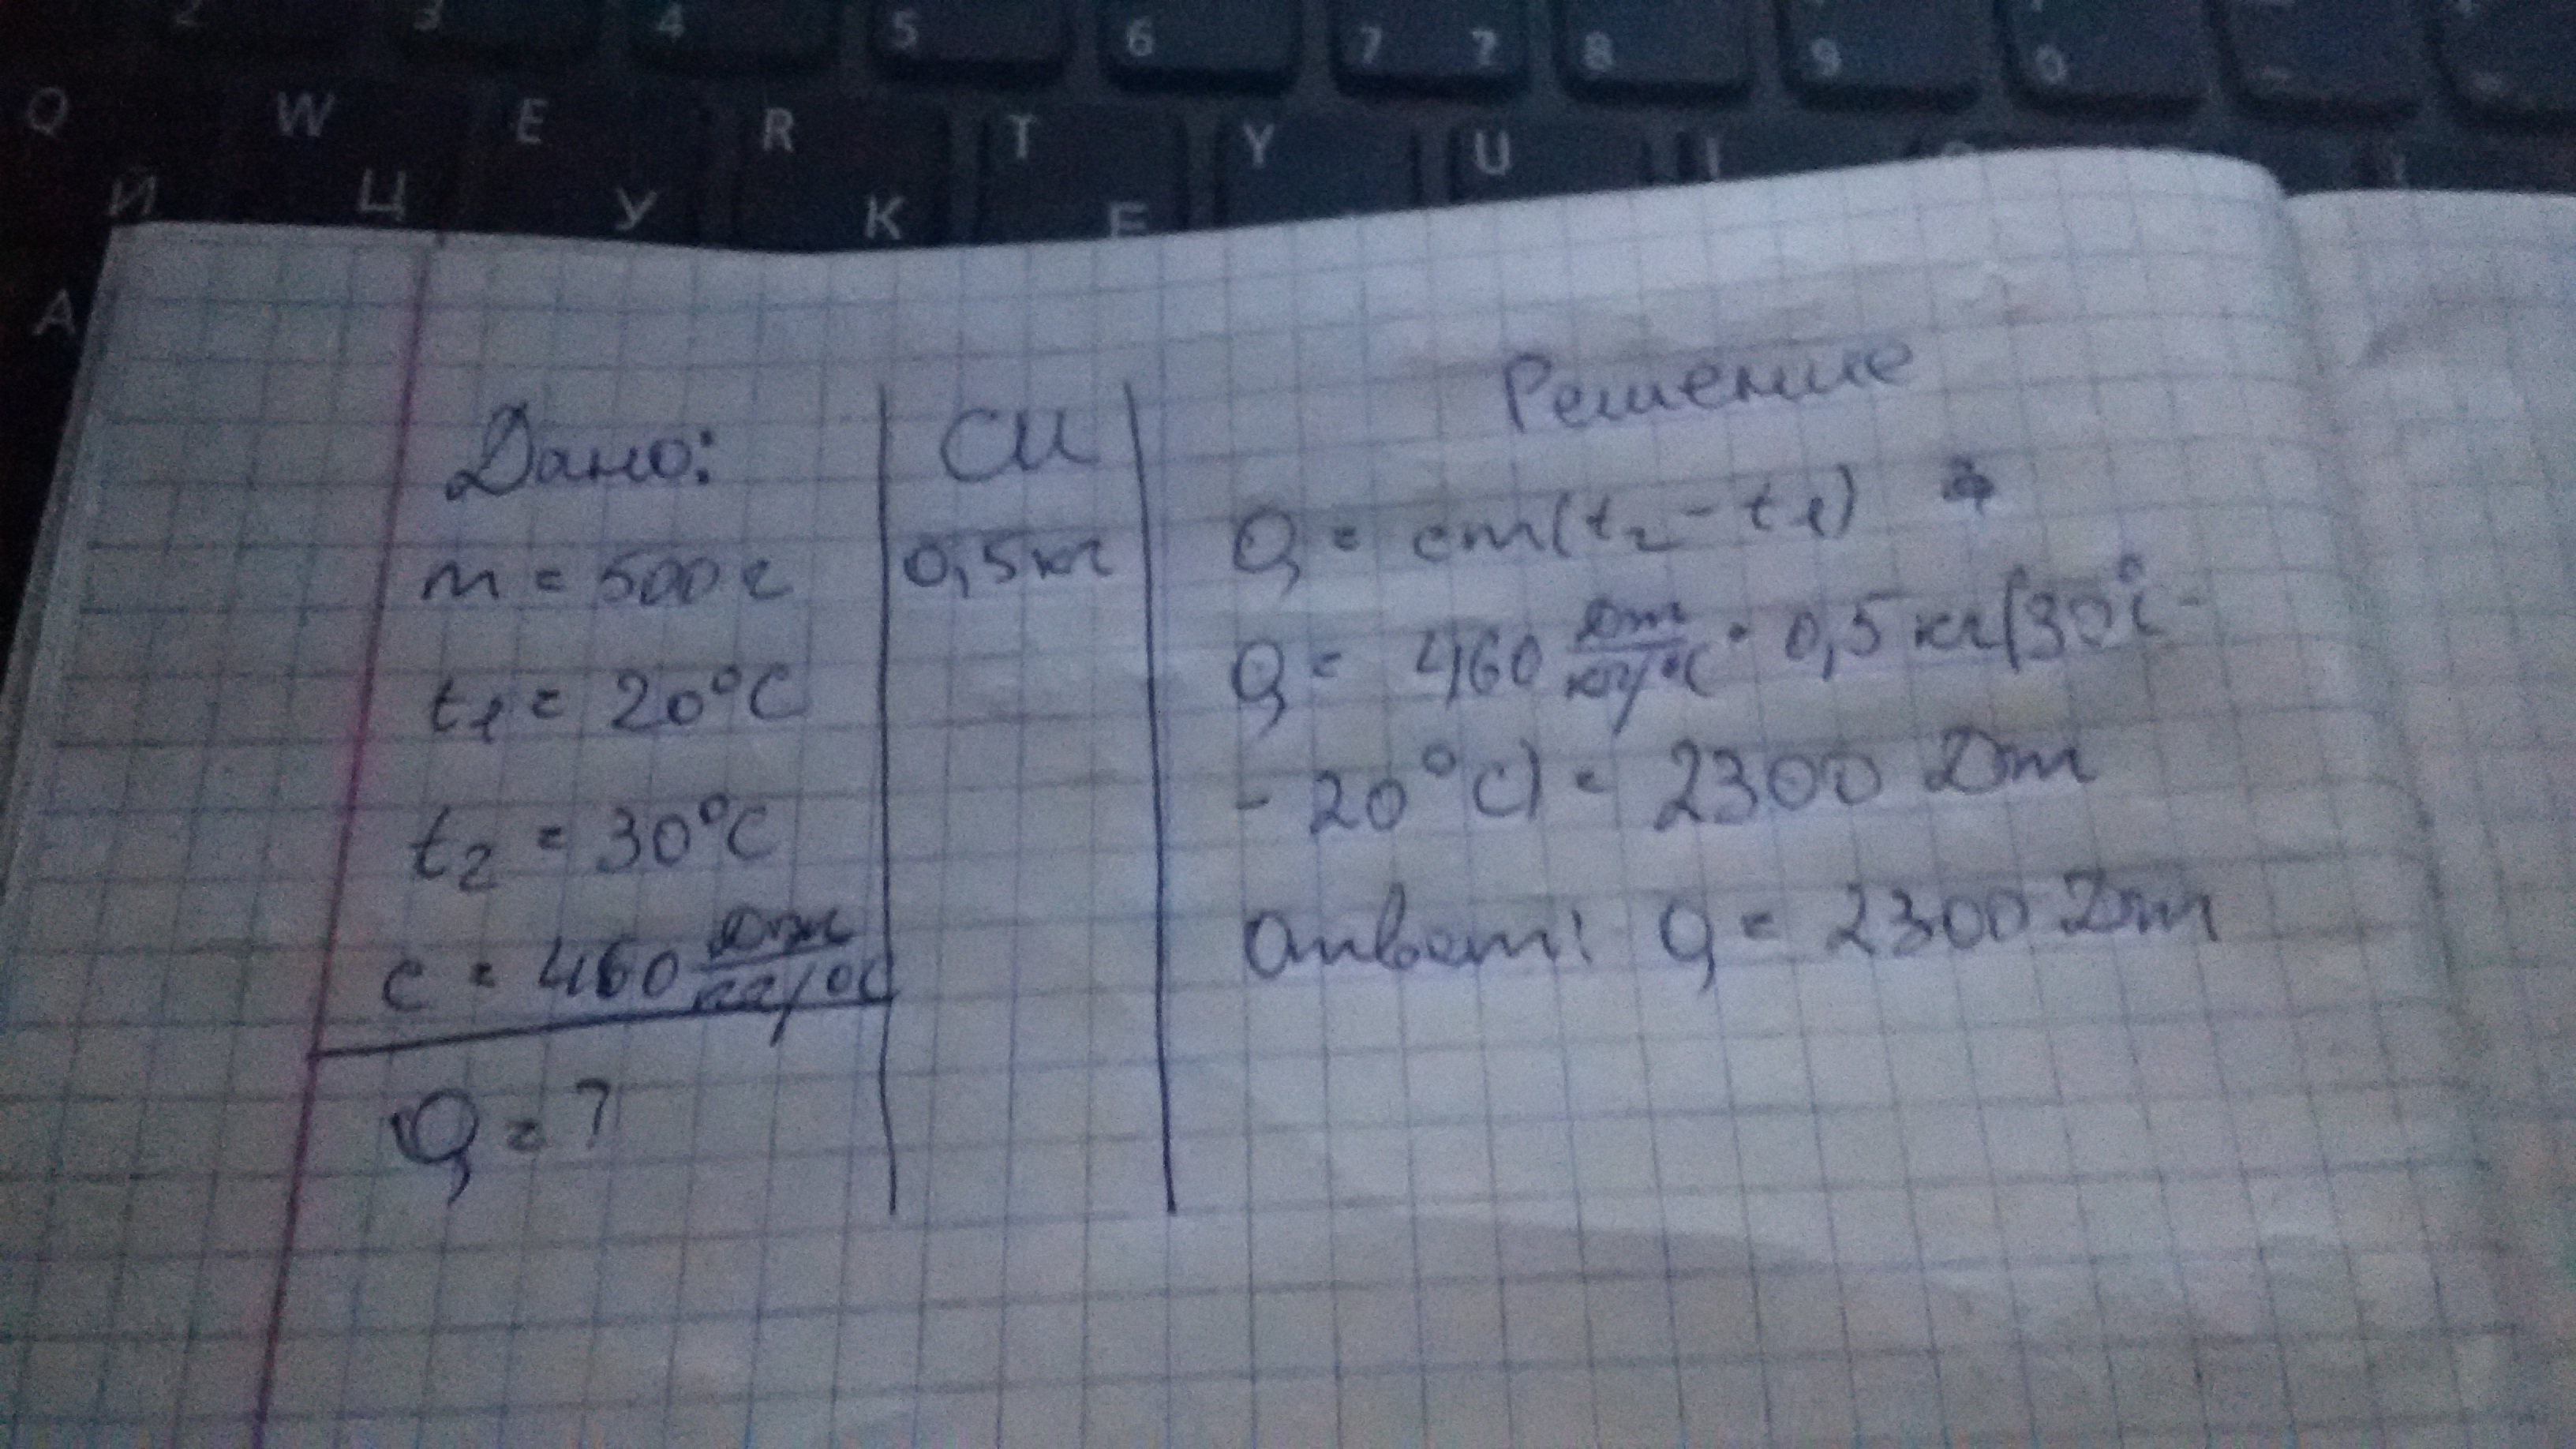 2 3 4 5 6 7 7 8 9 0
Q W E R T Y U I
Й Ц У К Е
A
Дано:
m = 500 г
t1 = 20°C
t2 = 30°C
c = 460 Дж/кг/°C
Q = ?
СИ
0,5 кг
Решение
Q = cm(t2 - t1)
Q = 460 Дж/кг/°C · 0,5 кг(30°C -
- 20°C) = 2300 Дж
Ответ: Q = 2300 Дж